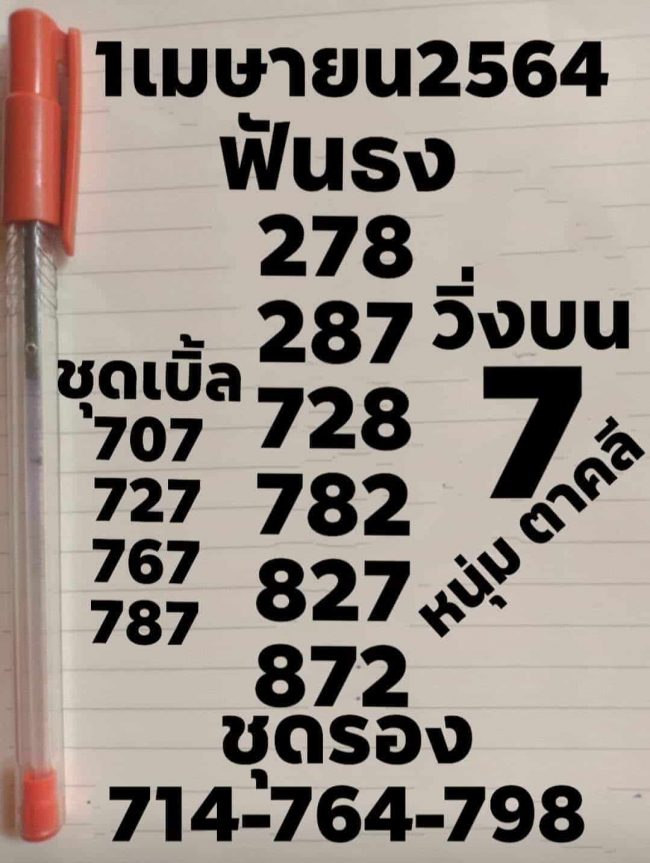 1เมษายน2564
ฟันธง
278
287
728
782
827
872
วิ่งบน
7
หนุ่ม ตาคลี
ชุดเบิ้ล
707
727
767
787
ชุดรอง
714-764-798